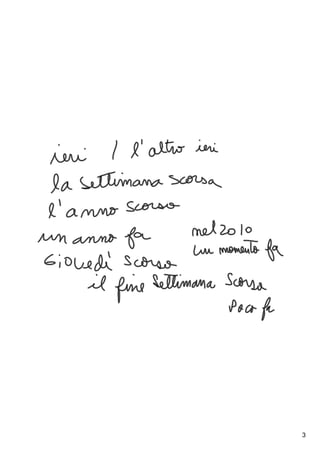 ieri / l'altro ieri
la settimana scorsa
l'anno scorso
un anno fa
nel 2010
un momento fa
Giovedì scorso
il fine settimana scorsa
poco fa
3